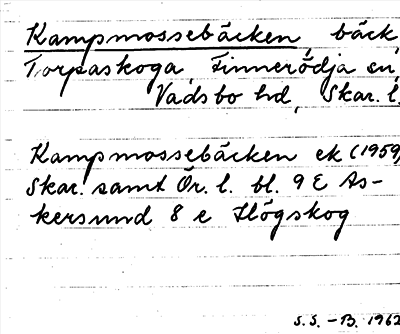 Kampmossebäcken, bäck
Torpaskoga, Finnerödja sn,
Vadsbo hd, Skar. l.
Kampmossebäcken ek (1959)
Skar. samt Ör. l. bl. 9 E As-
kersund 8 e Högskog
S.S. - B. 1962